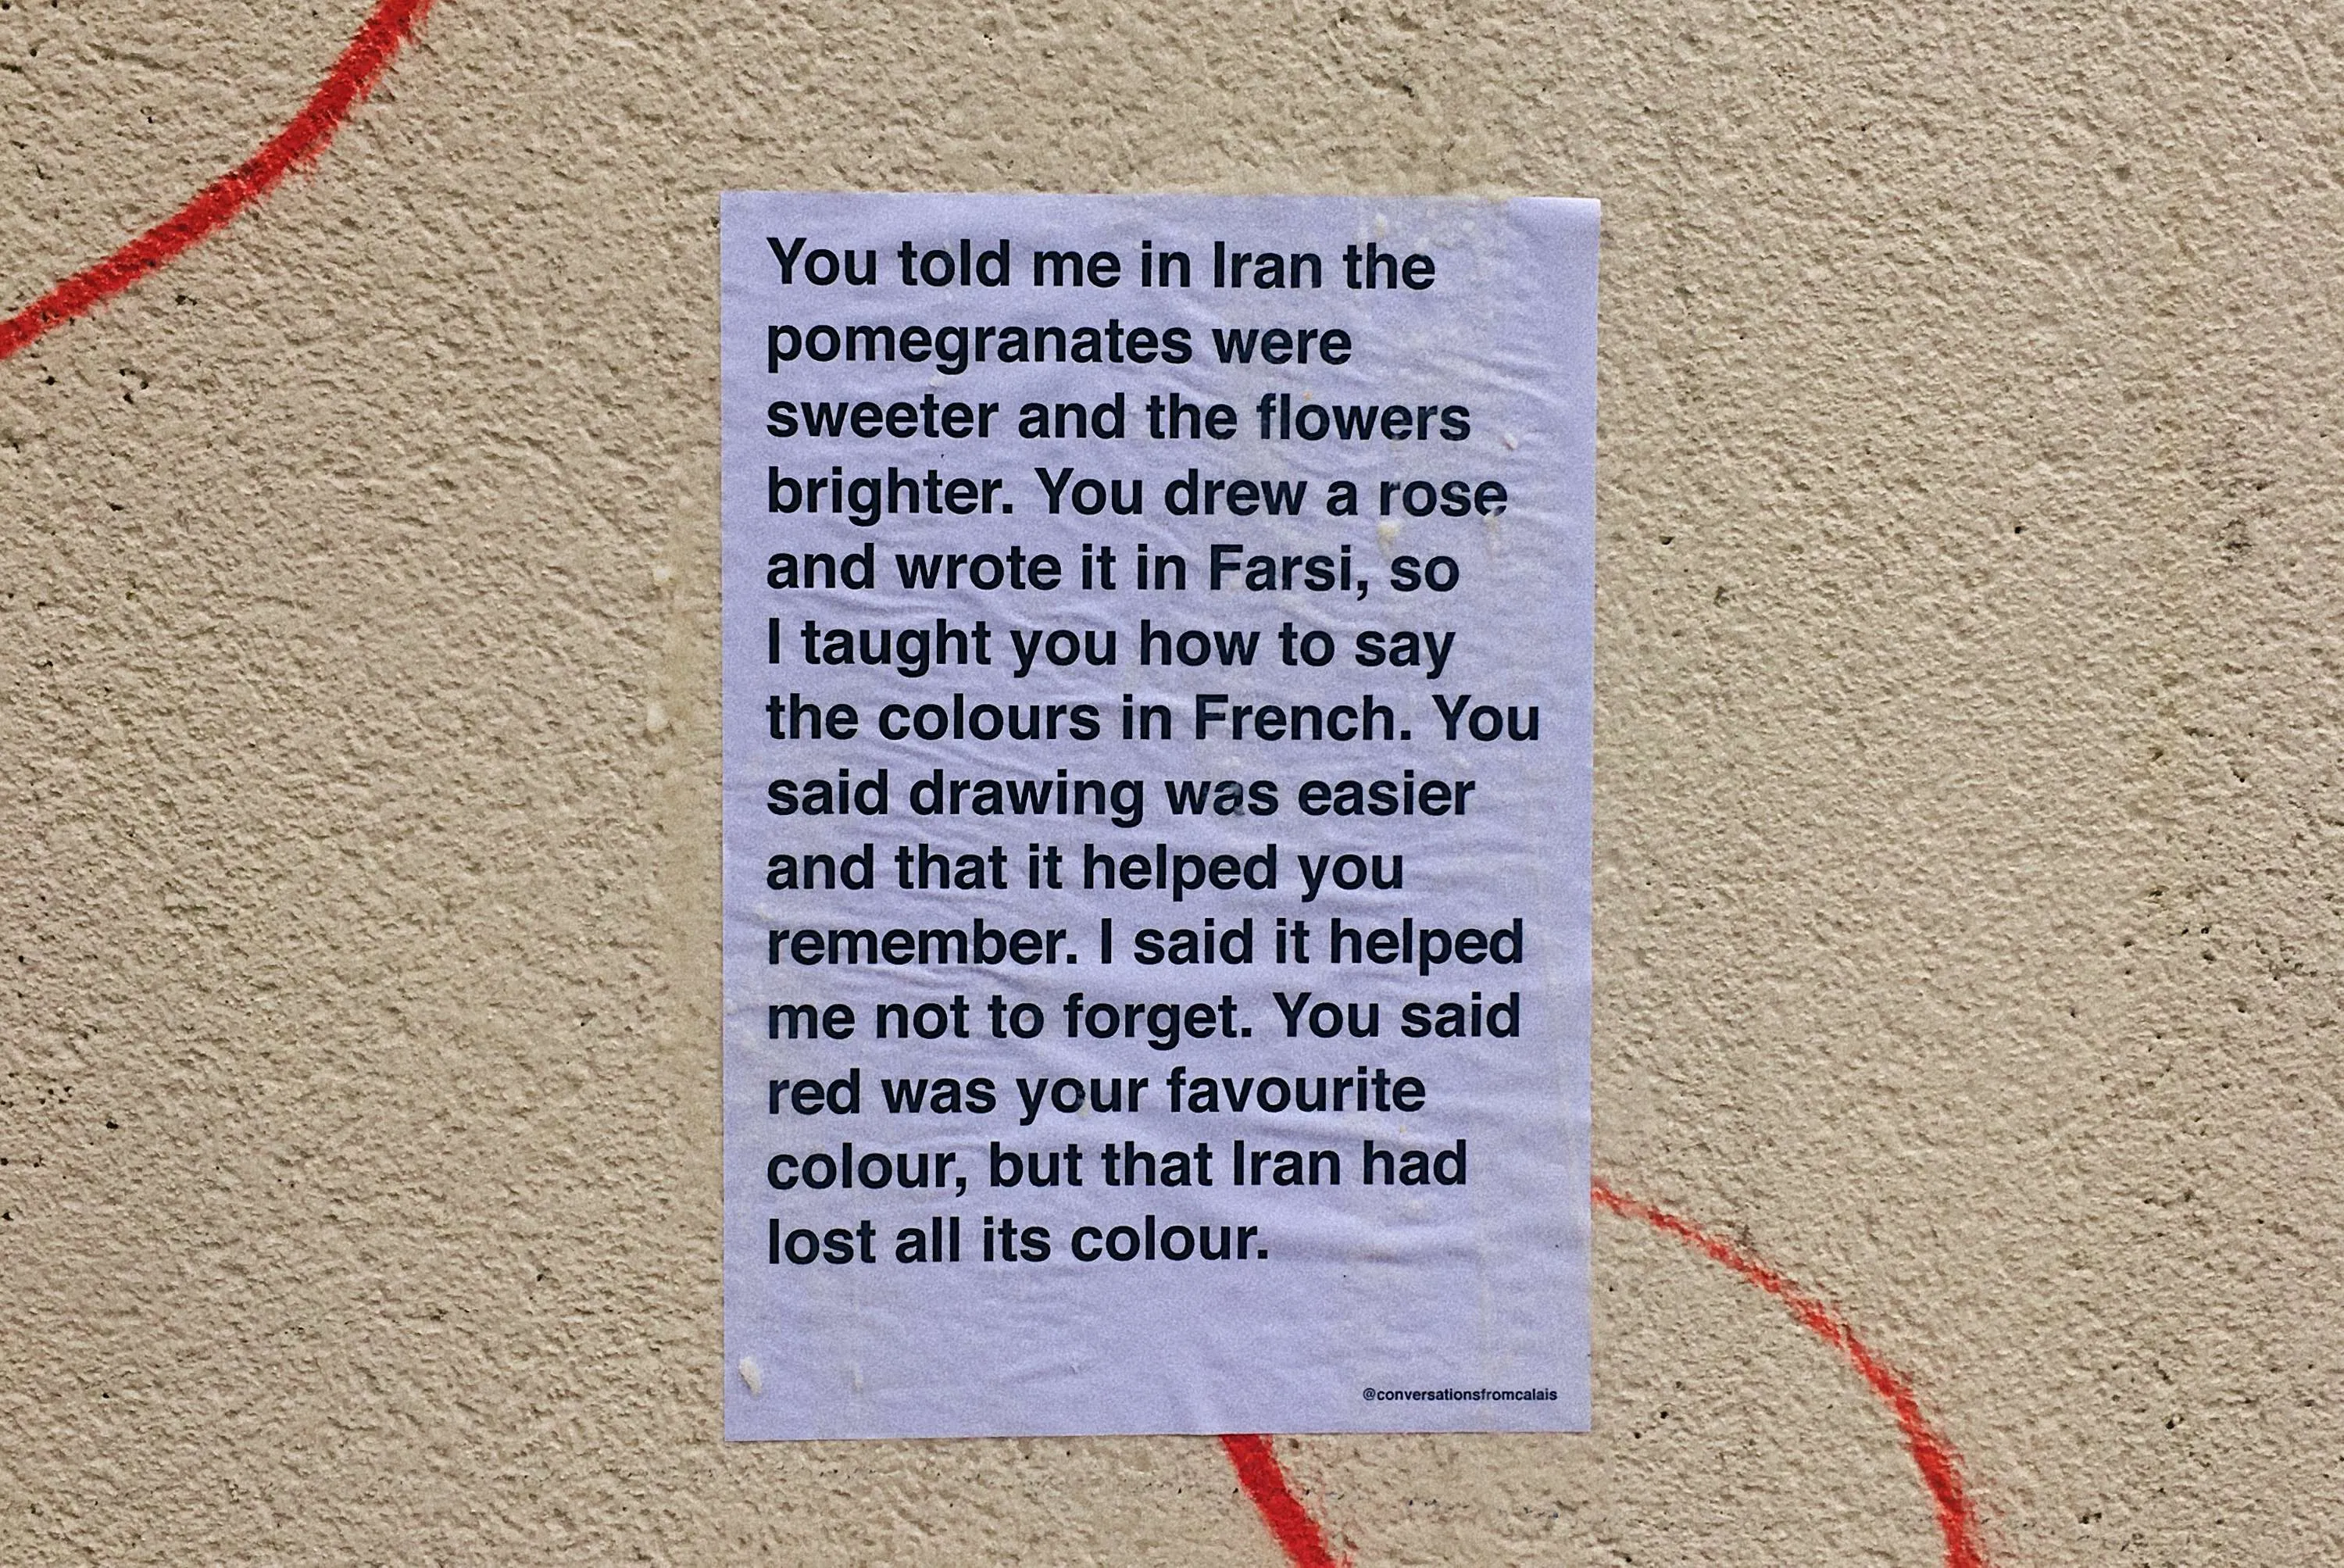 You told me in Iran the
pomegranates were
sweeter and the flowers
brighter. You drew a rose
and wrote it in Farsi, so
I taught you how to say
the colours in French. You
said drawing was easier
and that it helped you
remember. I said it helped
me not to forget. You said
red was your favourite
colour, but that Iran had
lost all its colour.
@conversationsfromcalais